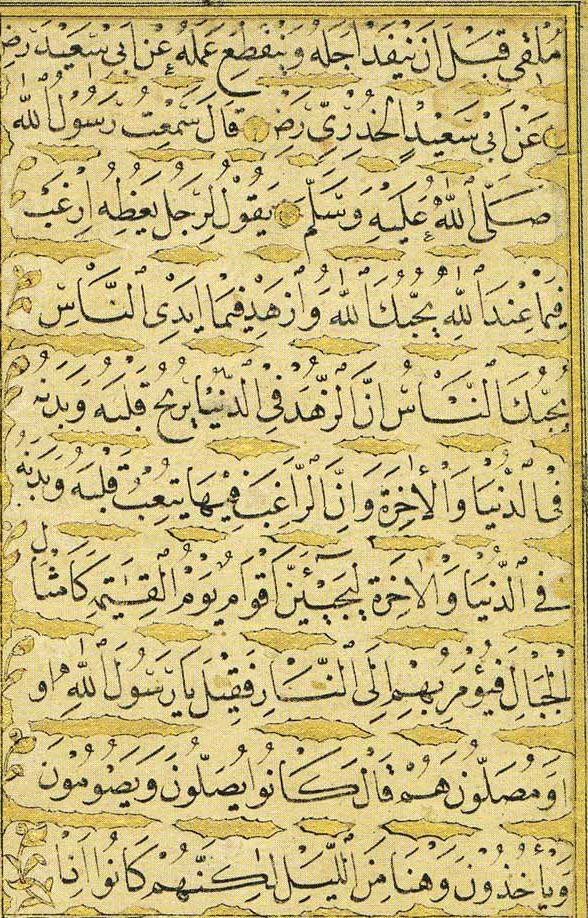 مُلْقِي قَبْلَ اَنْ يَنْفَدَ اَجَلُهُ وَيَنْقَطِعَ عَمَلُهُ عَنْ اَبِي سَعِيدٍ رَض
عَنْ اَبِي سَعِيدٍ الْخُدْرِيِّ رَضِ قَالَ سَمِعْتُ رَسُولَ اللّٰهِ
صَلَّى اللّٰهُ عَلَيْهِ وَسَلَّمَ يَقُولُ لِرَجُلٍ يَعِظُهُ اِرْغَبْ
فِيمَا عِنْدَ اللّٰهِ يُحِبُّكَ اللّٰهُ وَازْهَدْ فِيمَا اَيْدِي النَّاسِ
يُحِبُّكَ النَّاسُ اِنَّ الزُّهْدَ فِي الدُّنْيَا يُرِيحُ قَلْبَهُ وَبَدَنَهُ
فِي الدُّنْيَا وَالْاٰخِرَةِ وَاِنَّ الرَّاغِبَ فِيهَا يُتْعِبُ قَلْبَهُ وَبَدَنَهُ
فِي الدُّنْيَا وَالْاٰخِرَةِ لَيَجِيئَنَّ اَقْوَامٌ يَوْمَ الْقِيٰمَةِ كَاَمْثَالِ
الْجِبَالِ فَيُؤْمَرُ بِهِمْ اِلَى النَّارِ فَقِيلَ يَا رَسُولَ اللّٰهِ او
اَوَمُصَلُّونَ هُمْ قَالَ كَانُوا يُصَلُّونَ وَيَصُومُونَ
وَيَأْخُذُونَ وَهْنًا مِنَ اللَّيْلِ لٰكِنَّهُمْ كَانُوا اِذَا